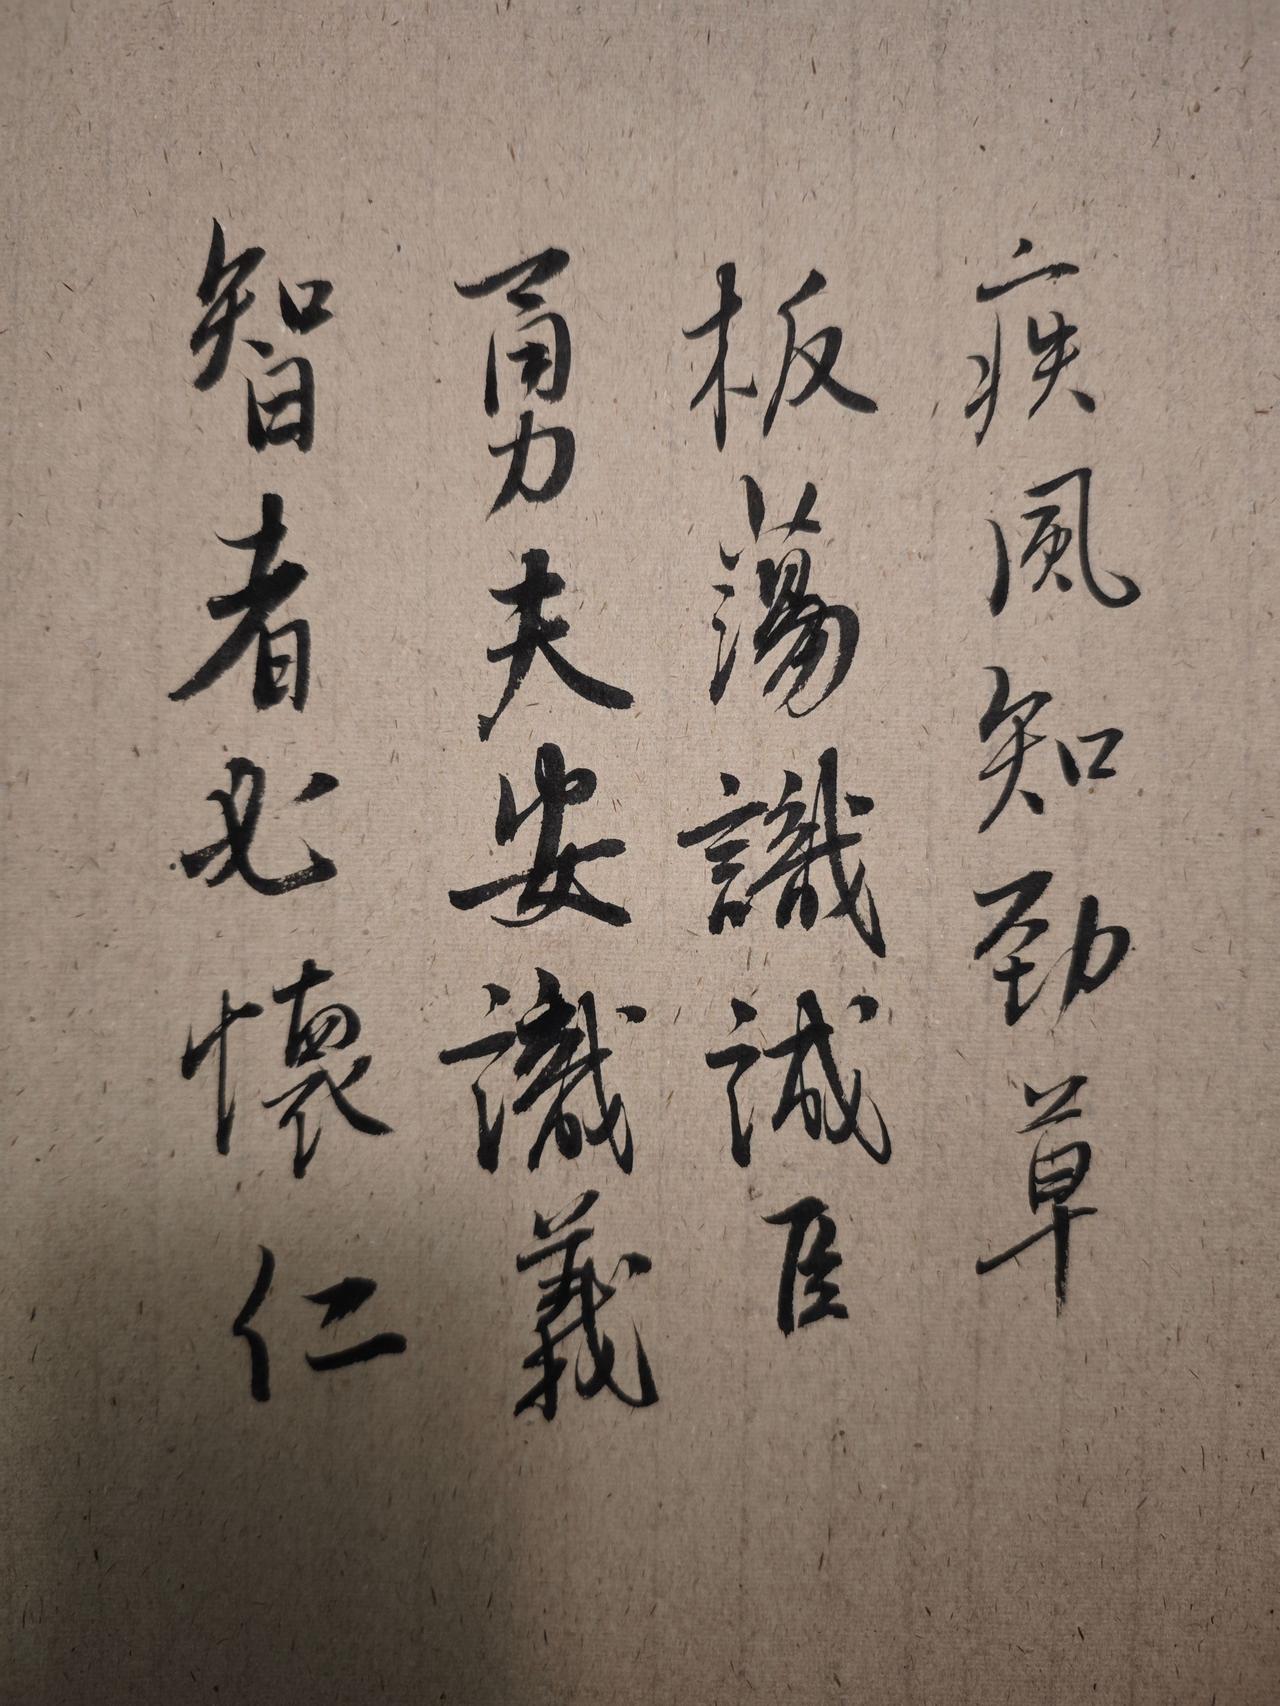 疾風知勁草
板蕩識誠臣
勇夫安識義
智者必懷仁